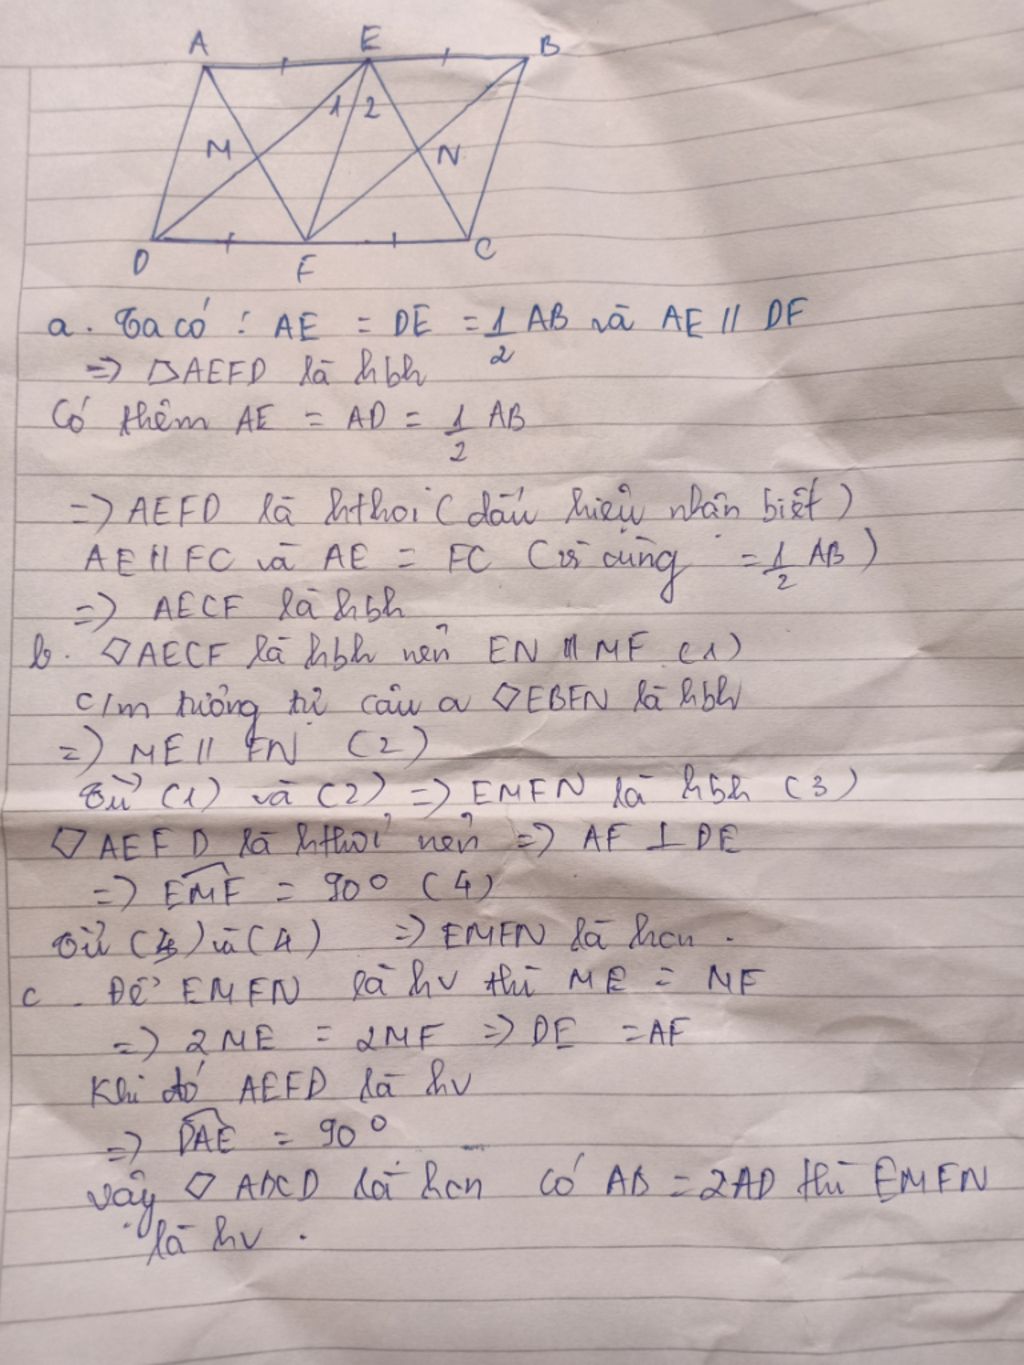 A E B
1 2
M N
D F C
a. Ta có : AE = DE = 1/2 AB và AE // DF
=> ▱AEFD là hbh
Có thêm AE = AD = 1/2 AB
=> AEFD là hthoi (dấu hiệu nhận biết)
AE // FC và AE = FC (vì cùng = 1/2 AB)
=> AECF là hbh
b. ▱AECF là hbh nên EN // MF (1)
c/m tương tự câu a ▱EBFN là hbh
=> ME // FN (2)
Từ (1) và (2) => EMFN là hbh (3)
▱AEFD là hthoi nên => AF ⊥ DE
=> EMF = 90° (4)
Từ (3) và (4) => EMFN là hcn.
c. Để EMFN là hv thì ME = MF
=> 2ME = 2MF => DE = AF
Khi đó AEFD là hv
=> DAE = 90°
vậy ▱ ABCD là hcn có AB = 2AD thì EMFN
là hv.